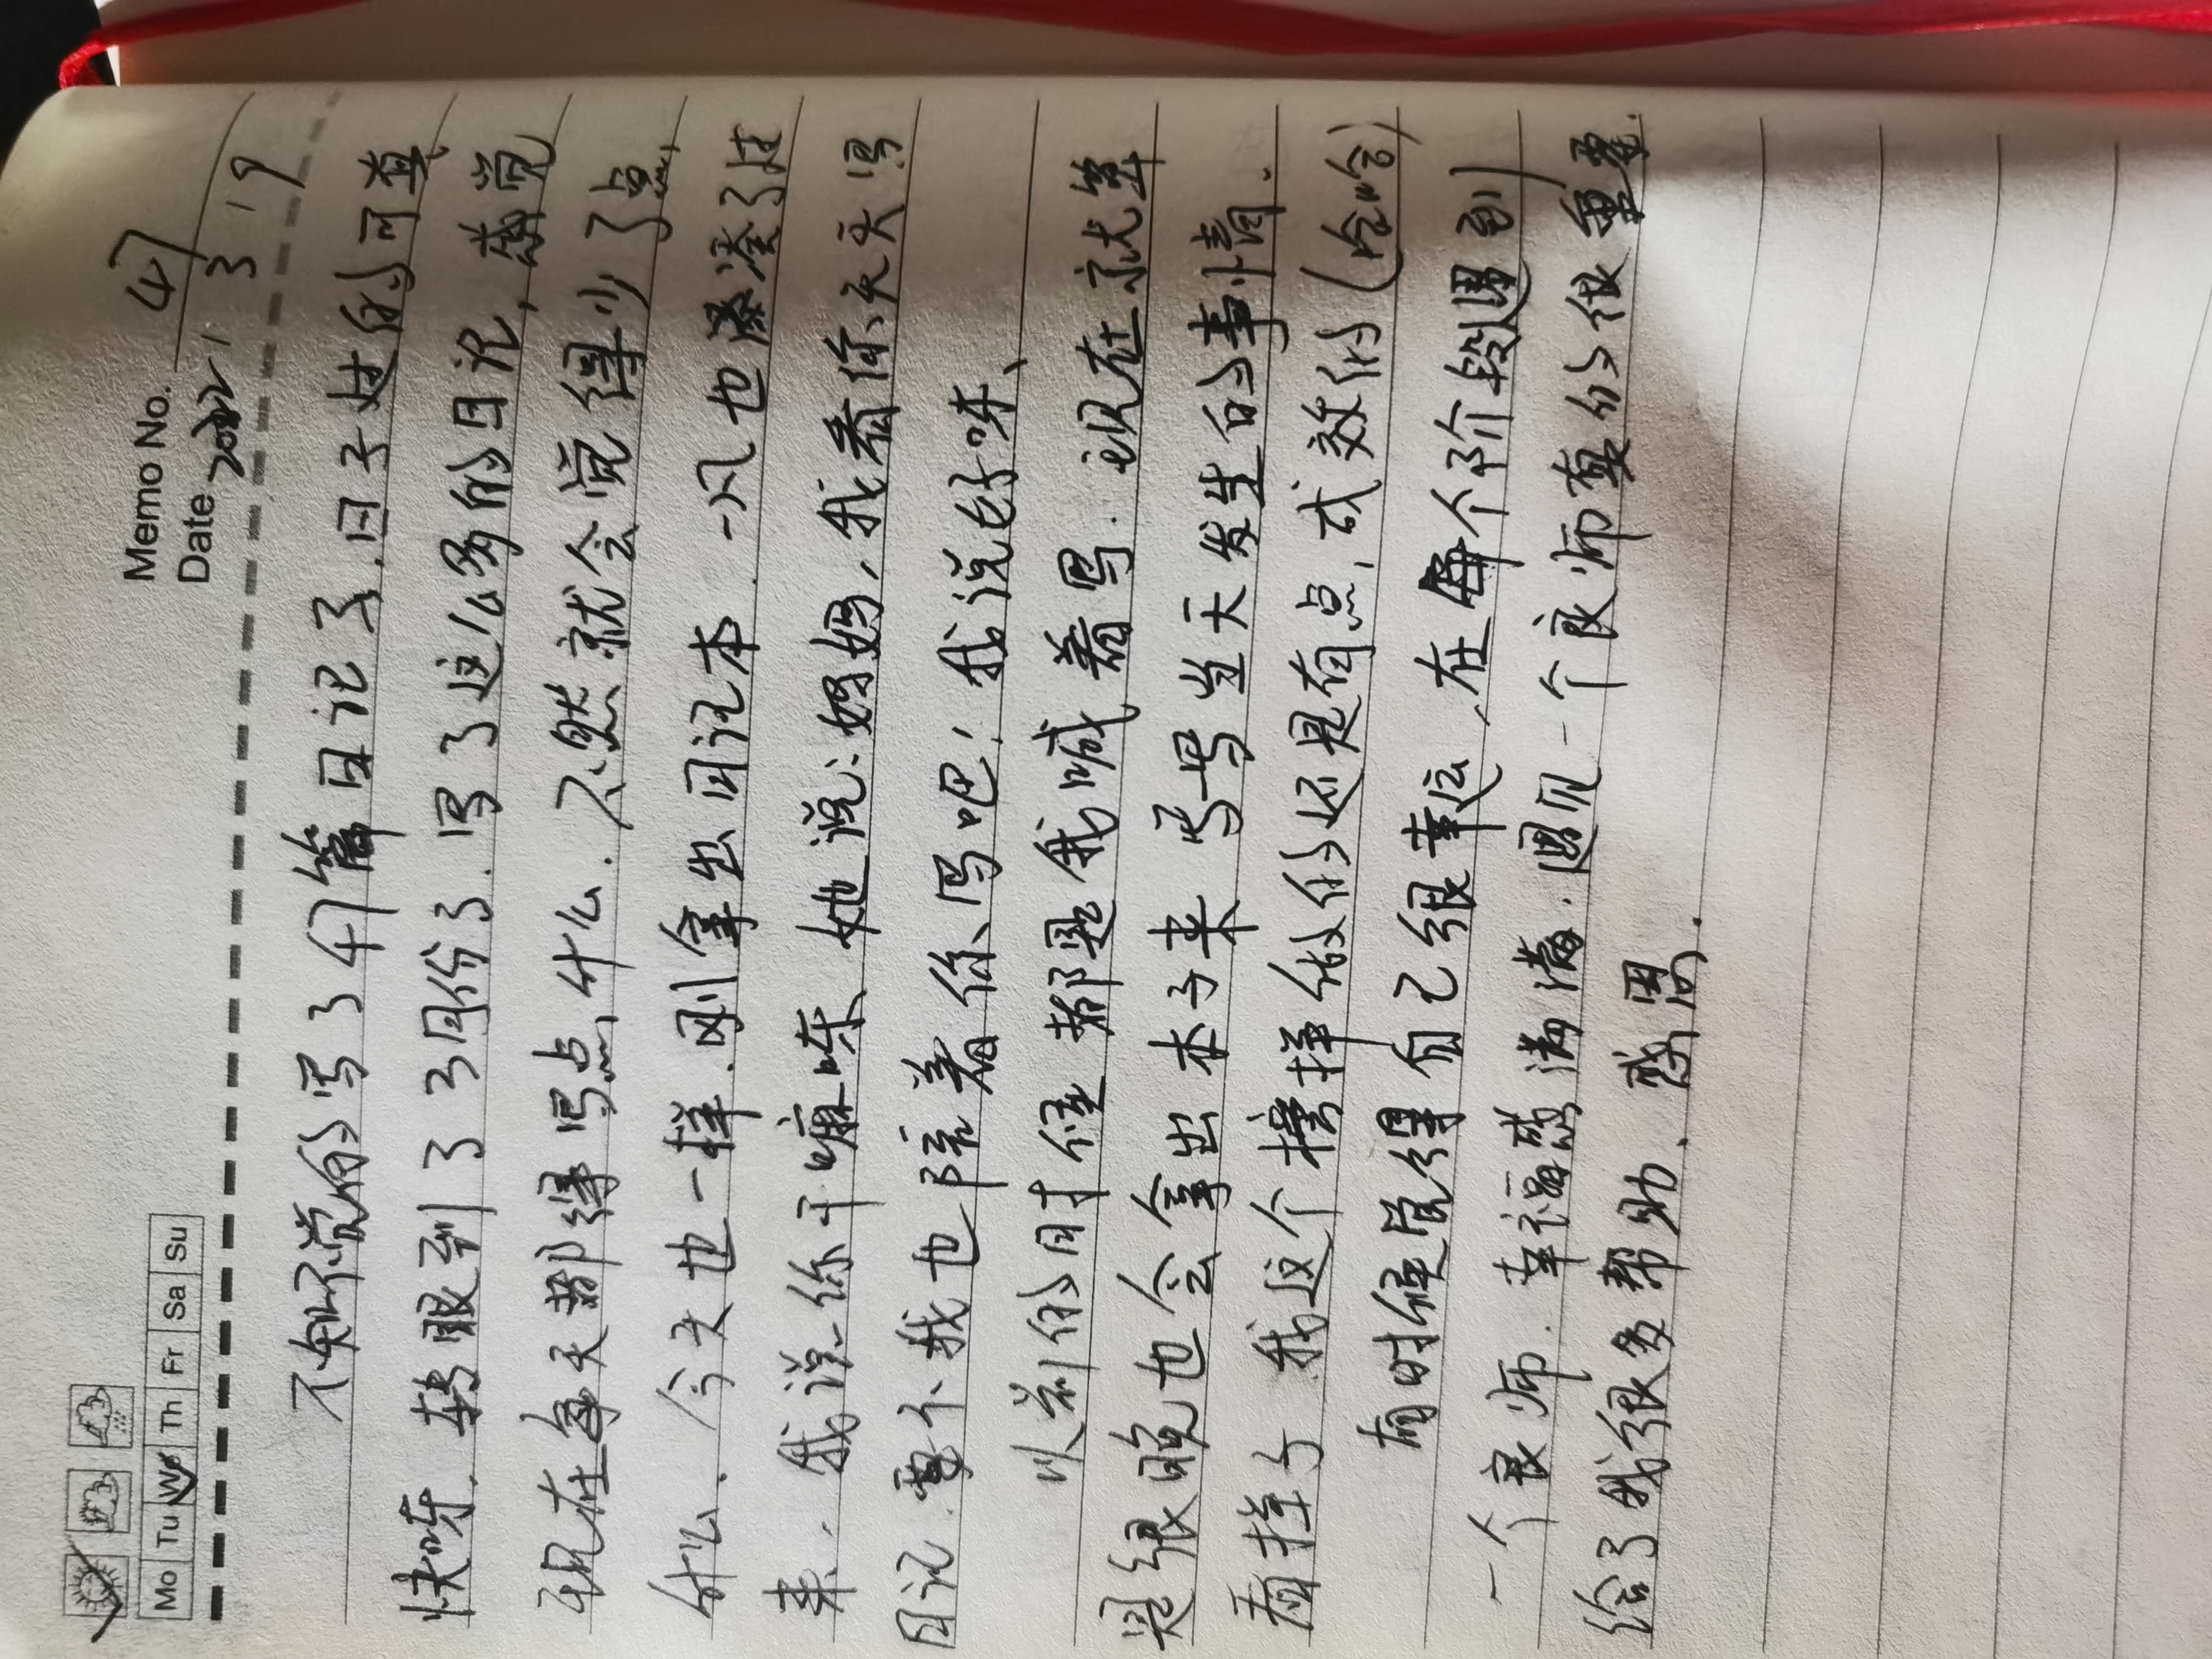 Memo No. 47
Mo Tu We Th Fr Sa Su
Date 2022 / 3 / 9
不知不觉的写了47篇日记了.日子过的可真
快呀.转眼到了3月份了.写了这么多的日记,感觉
现在每天都得写点什么.不然就会觉得少了点
什么.今天也一样.刚拿出日记本.一凡也凑了过
来.我说你干嘛呀.她说:妈妈,我看你天天写
日记.要不我也陪着你写吧!我说好呀、
以前的时候都是我喊着写.现在就算
是很晚也会拿出本子来写写当天发生的事情.
看样子我这个榜样做的还是有点成效的(哈哈)
有时候觉得自己很幸运,在每个阶段遇到
一个良师.幸福感满满.遇见一个良师真的很重要.
给了我很多帮助.感恩.